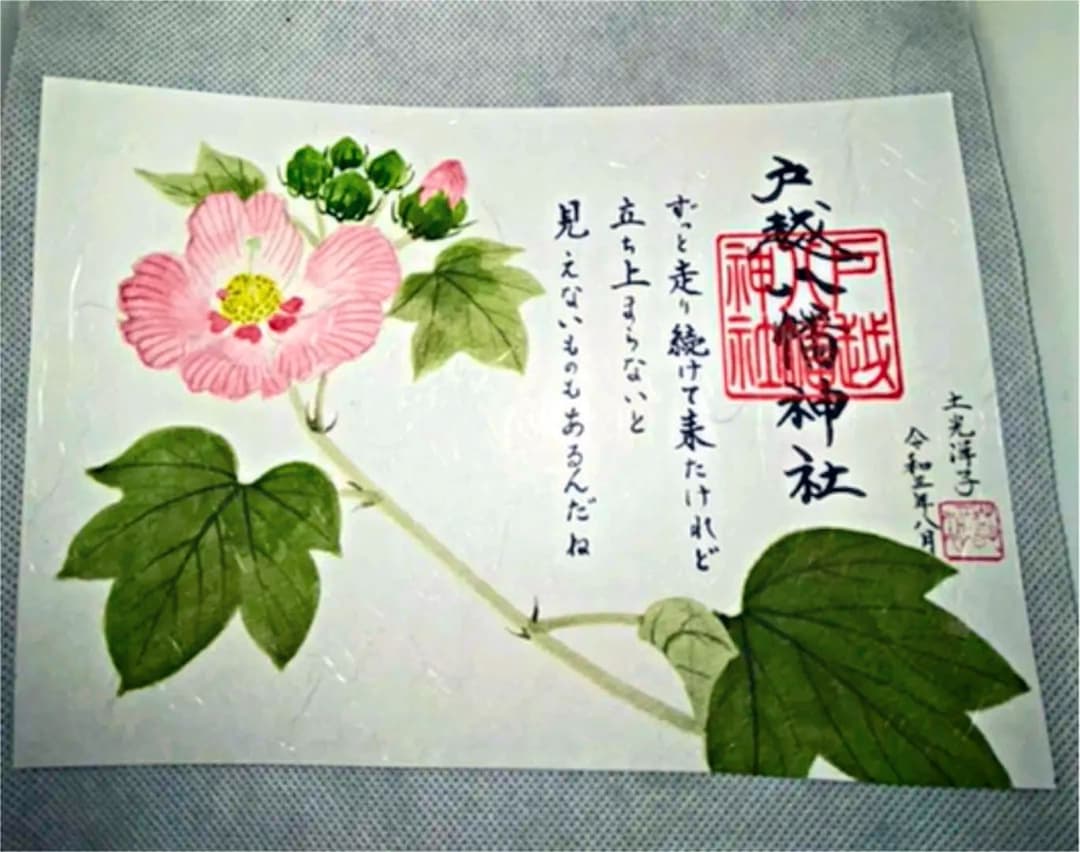 土光洋子
令和三年八月
戸越八幡神社
戸越
八幡
神社
ずっと走り続けて来たけれど
立ち止まらないと
見えないものもあるんだね